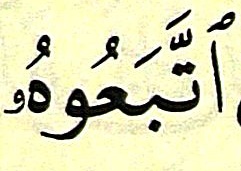 ٱتَّبَعُوهُۥ